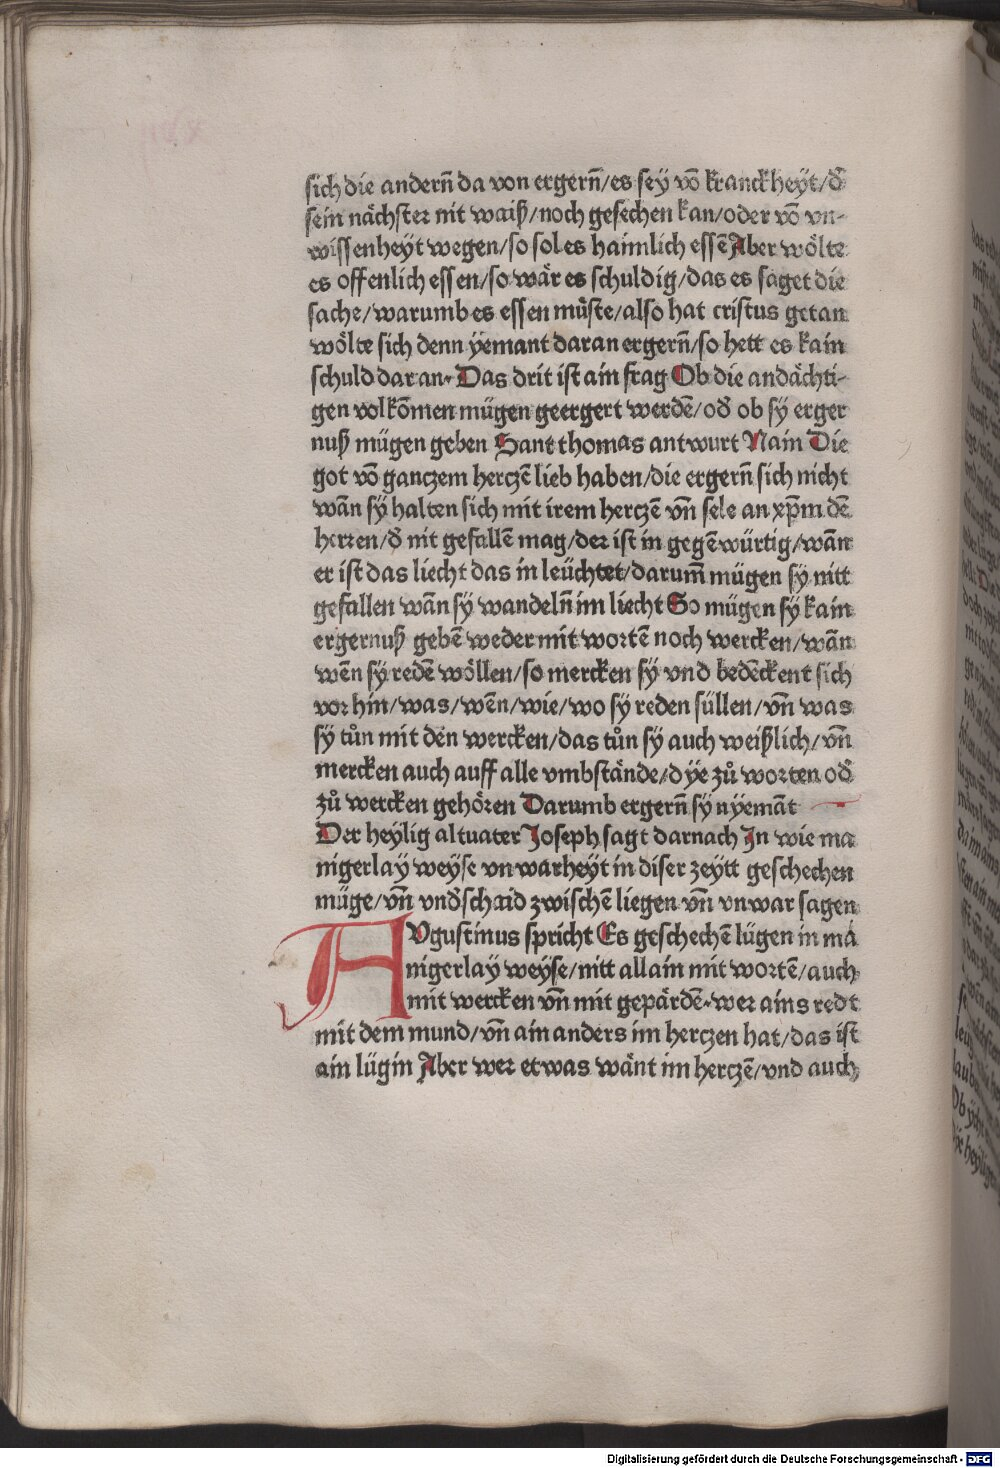 sich die andern̄ da von ergern̄/es sey vō kranckheyt/đ
sein nächster nit waiß/noch gesechen kan/oder vō vn-
wissenheyt wegen/so sol es haimlich essē Aber wölte
es offenlich essen/so wär es schuldig/das es saget die
sache/warumb es essen müste/also hat cristus getan
wölte sich denn yemant daran ergern̄/so hett es kain
schuld dar an. Das drit ist ain frag Ob die andächti-
gen volkōmen mügen geergert werdē/ođ ob sÿ erger
nuß mügen geben Sant thomas antwurt Nain Die
got vō ganczem herczē lieb haben/die ergern̄ sich nicht
wān sÿ halten sich mit irem herczē vn̄ sele an xp̄m dē
herren/đ nit gefallē mag/der ist in gegēwürtig/wān
er ist das liecht das in leüchtet/darum̄ mügen sÿ nitt
gefallen wān sÿ wandeln̄ im liecht So mügen sÿ kain
ergernuß gebē weder mit wortē noch wercken/wān
wēn sÿ redē wöllen/so mercken sÿ vnd bedēckent sich
vor hin/was/wēn/wie/wo sÿ reden süllen/vn̄ was
sÿ tůn mit den wercken/das tůn sÿ auch weißlich/vn̄
mercken auch auff alle vmbstände/dÿe zů worten ođ
zů wercken gehören Darumb ergern̄ sÿ nyemāt
Der heylig altuater Joseph sagt darnach Jn wie ma
nigerlay weyse vnwarheyt in diser zeytt geschechen
müge/vn̄ vnđschaid zwischē liegen vn̄ vnwar sagen
AVgustinus spricht Es geschechē lügen in mā
nigerlaÿ weyse/nitt allain mit wortē/auch
mit wercken vn̄ mit gepärdē. wer ains redt
mit dem mund/vn̄ ain anders im herczen hat/das ist
ain lügin Aber wer etwas wänt im herczē/vnd auch
Digitalisierung gefördert durch die Deutsche Forschungsgemeinschaft - DFG